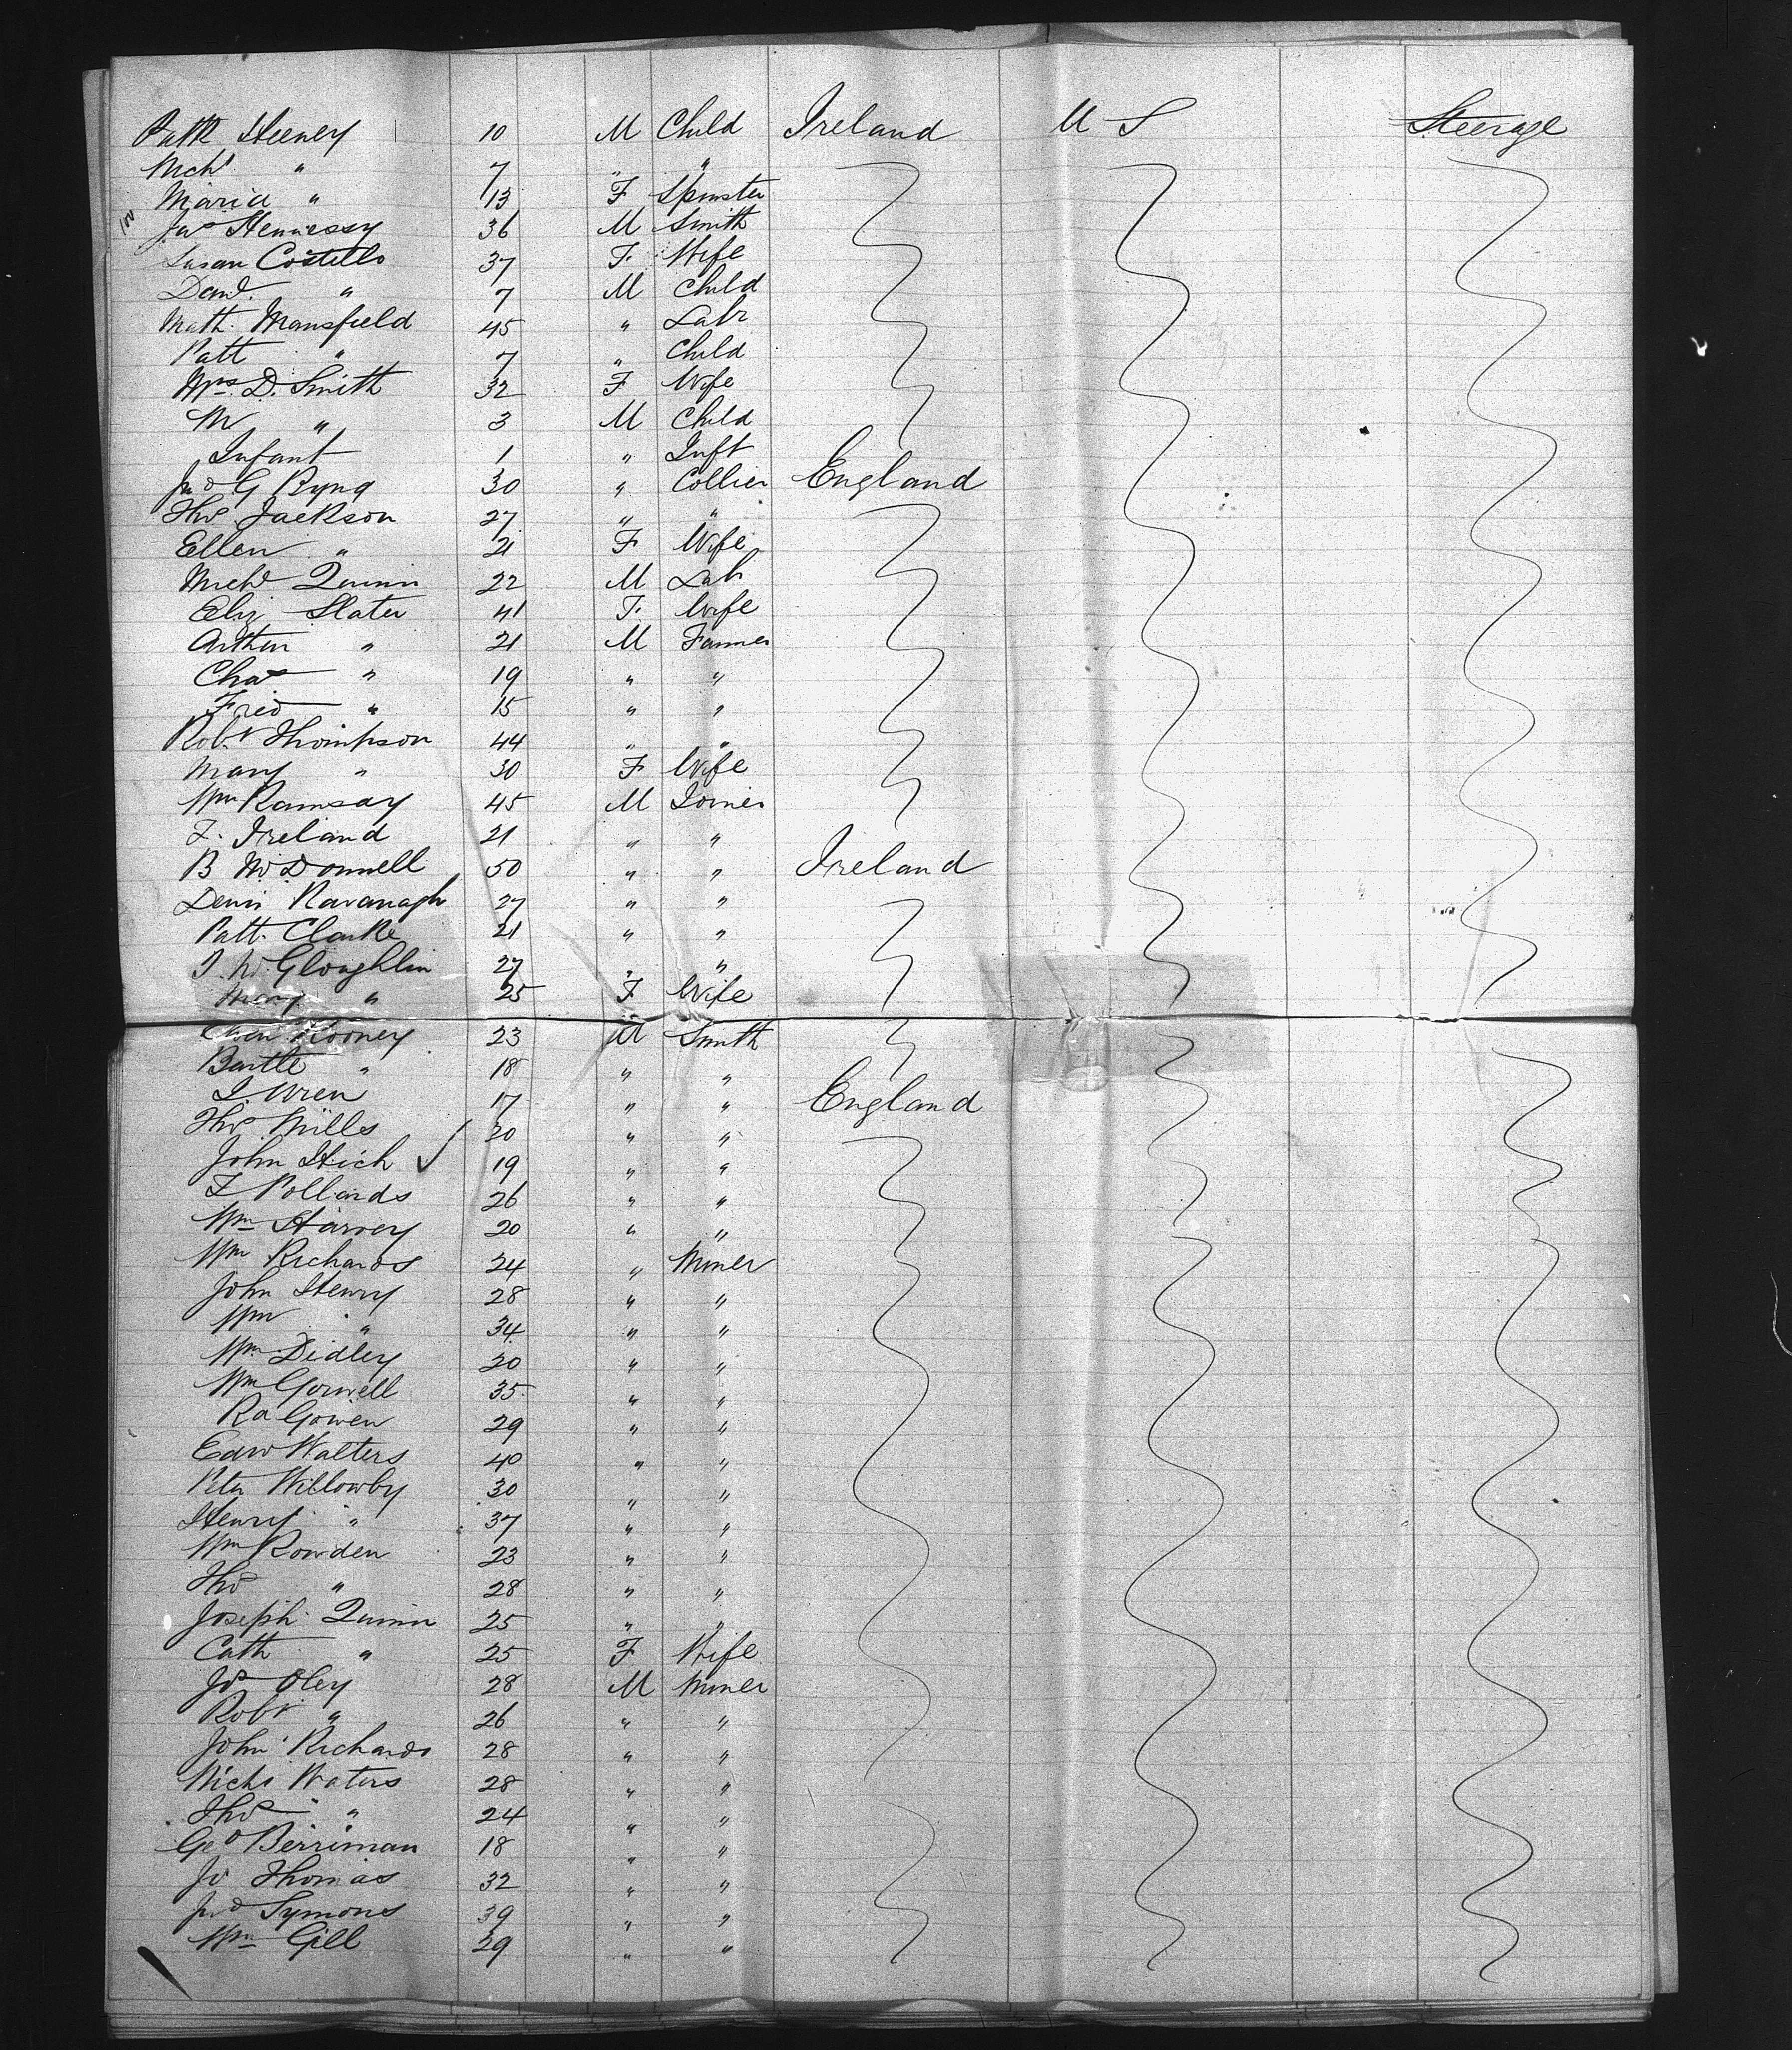 Patk Heeney 10 M Child Ireland U S Steerage
Mchl " 7 " "
Maria " 13 F Spinster
Jas Hennessy 36 M Smith
Susan Costello 37 F Wife
Dand. " 7 M Child
Math. Mansfield 45 " Labr
Patt " 7 " Child
Mrs. D. Smith 32 F Wife
M " 3 M Child
Infant 1 " Inft
Jno G Byng 30 " Collier England
Thos Jackson 27 " "
Ellen " 21 F Wife
Michl Quinn 22 M Lab
Eliz Slater 41 F Wife
Arthur " 21 M Farmer
Chas " 19 " "
Fred " 15 " "
Robt Thompson 44 " "
Mary " 30 F Wife
Wm Ramsay 45 M Joiner
F. Ireland 21 " "
B McDonnell 50 " " Ireland
Denis Kavanagh 27 " "
Patt. Clarke 21 " "
J. McGloughlin 27 " "
Mary " 25 F Wife
Owen Rooney 23 M Smith
Bartle " 18 " "
J Wren 17 " " England
Thos Mills 30 " "
John Hich ✓ 19 " "
F Pollards 26 " "
Wm Harvey 20 " "
Wm Richards 24 " Miner
John Henry 28 " "
Wm " 34 " "
Wm Didley 20 " "
Wm Gorwell 35 " "
Ra Gowen 29 " "
Edw Walters 40 " "
Peter Willowby 30 " "
Henry " 37 " "
Wm Rowden 23 " "
Thos " 28 " "
Joseph Quinn 25 " "
Cath " 25 F Wife
Jos Oley 28 M Miner
Robt " 26 " "
John Richards 28 " "
Nichs Waters 28 " "
Thos " 24 " "
Geo Berriman 18 " "
Jos Thomas 32 " "
Jno Symons 39 " "
Wm Gill 29 " "